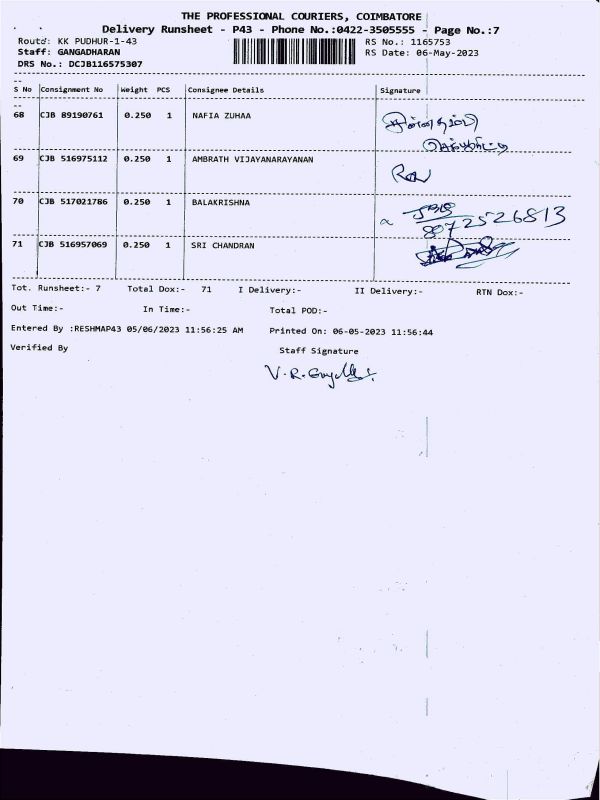 THE PROFESSIONAL COURIERS, COIMBATORE
Delivery Runsheet - P43 - Phone No.:0422-3505555 - Page No.:7
Route: KK PUDHUR-1-43 RS No.: 1165753
Staff: GANGADHARAN RS Date: 06-May-2023
DRS No.: DCJB116575307
S No Consignment No Weight PCS Consignee Details Signature
68 CJB 89190761 0.250 1 NAFIA ZUHAA
69 CJB 516975112 0.250 1 AMBRATH VIJAYANARAYANAN
70 CJB 517021786 0.250 1 BALAKRISHNA
8072526813
71 CJB 516957069 0.250 1 SRI CHANDRAN
Tot. Runsheet:- 7 Total Dox:- 71 I Delivery:- II Delivery:- RTN Dox:-
Out Time:- In Time:- Total POD:-
Entered By :RESHMAP43 05/06/2023 11:56:25 AM Printed On: 06-05-2023 11:56:44
Verified By Staff Signature
V.R.